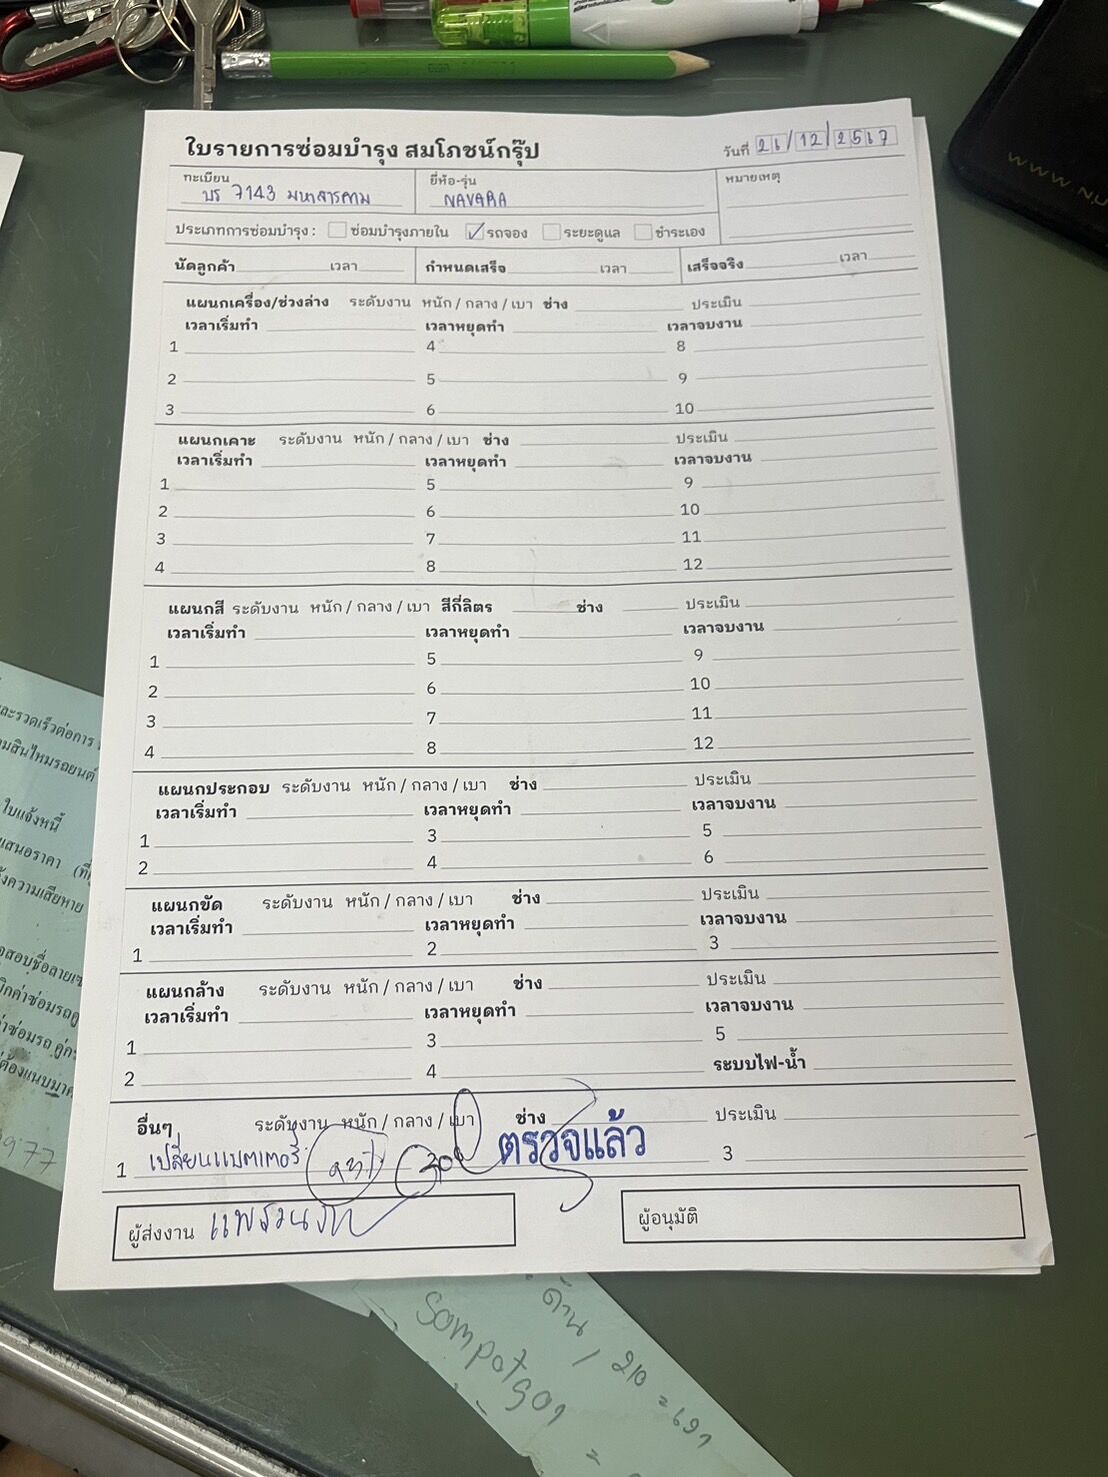 ใบรายการซ่อมบำรุง สมโภชน์กรุ๊ป
วันที่ 26/12/2567
ทะเบียน บร 7143 มหาสารคาม
ยี่ห้อ-รุ่น NAVARA
หมายเหตุ
ประเภทการซ่อมบำรุง : ซ่อมบำรุงภายใน ✓ รถจอง ระยะดูแล ชำระเอง
นัดลูกค้า เวลา กำหนดเสร็จ เวลา เสร็จจริง เวลา
แผนกเครื่อง/ช่วงล่าง ระดับงาน หนัก / กลาง / เบา ช่าง ประเมิน
เวลาเริ่มทำ เวลาหยุดทำ เวลาจบงาน
1 4 8
2 5 9
3 6 10
แผนกเคาะ ระดับงาน หนัก / กลาง / เบา ช่าง ประเมิน
เวลาเริ่มทำ เวลาหยุดทำ เวลาจบงาน
1 5 9
2 6 10
3 7 11
4 8 12
แผนกสี ระดับงาน หนัก / กลาง / เบา สีกี่ลิตร ช่าง ประเมิน
เวลาเริ่มทำ เวลาหยุดทำ เวลาจบงาน
1 5 9
2 6 10
3 7 11
4 8 12
แผนกประกอบ ระดับงาน หนัก / กลาง / เบา ช่าง ประเมิน
เวลาเริ่มทำ เวลาหยุดทำ เวลาจบงาน
1 3 5
2 4 6
แผนกขัด ระดับงาน หนัก / กลาง / เบา ช่าง ประเมิน
เวลาเริ่มทำ เวลาหยุดทำ เวลาจบงาน
1 2 3
แผนกล้าง ระดับงาน หนัก / กลาง / เบา ช่าง ประเมิน
เวลาเริ่มทำ เวลาหยุดทำ เวลาจบงาน
1 3 5
2 4 ระบบไฟ-น้ำ
อื่นๆ ระดับงาน หนัก / กลาง / เบา ช่าง ประเมิน
1 เปลี่ยนแบตเตอรี่ ตรวจแล้ว 3
ผู้ส่งงาน
ผู้อนุมัติ
และรวดเร็วต่อการ
ใบแจ้งหนี้
เสนอราคา
ความเสียหาย
ค่าซ่อมรถ
ต้องแนบมา
977
ด้าน / 210 = 691
Sompotgo1